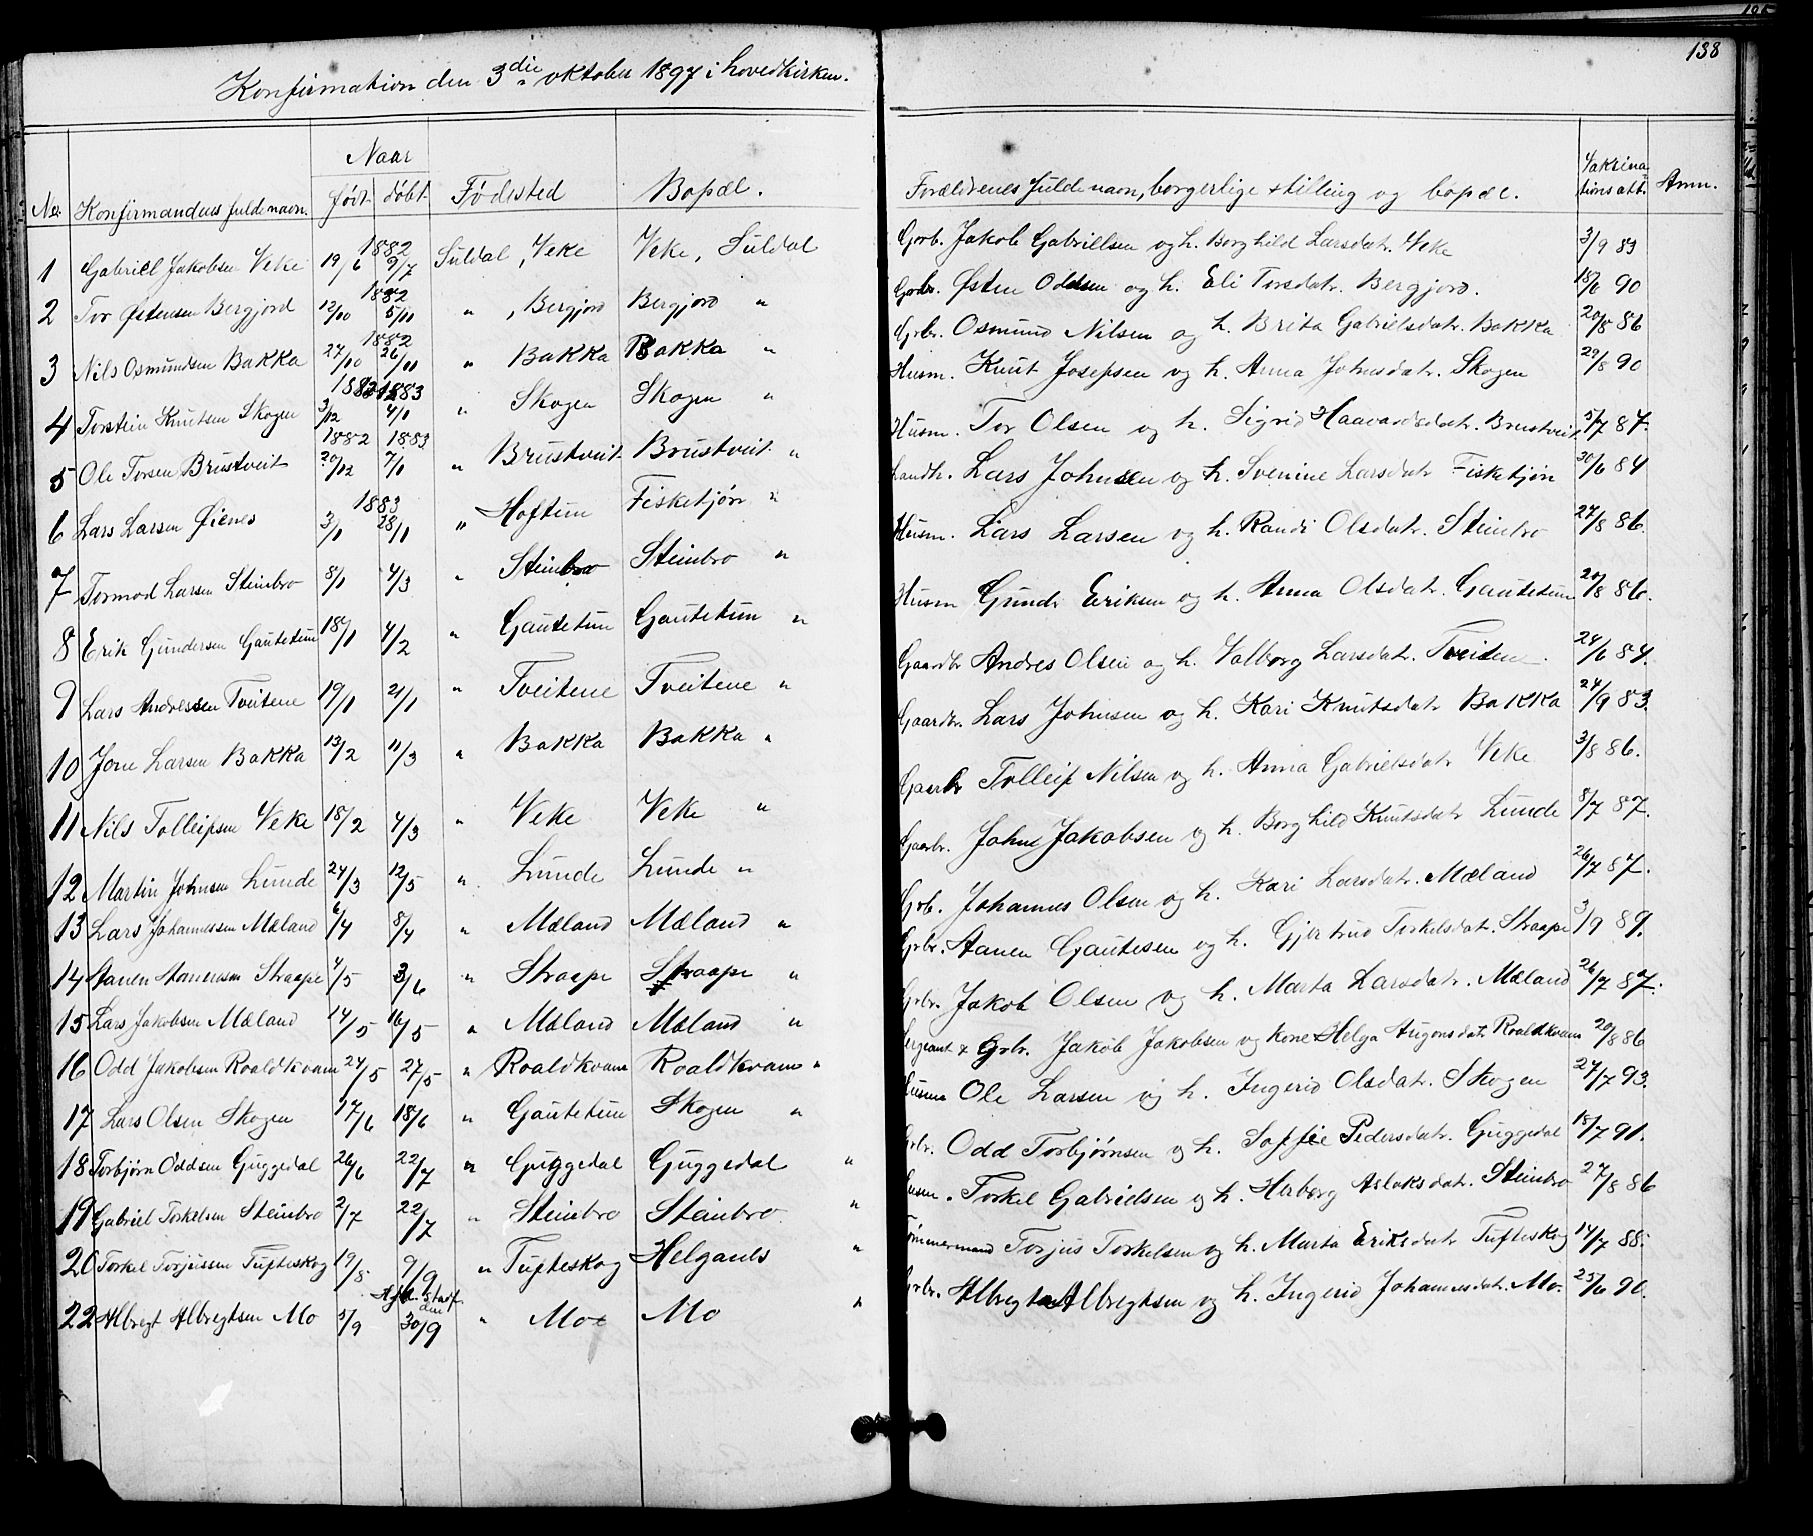 138
Konfirmation den 3die oktober 1897 i hovedkirken.
No. Konfirmandens fulde navn. Naar født. døbt. Fødested Bopæl. Forældrenes fulde navn, borgerlige stilling og bopæl. Vakcinationsatt. Anm.
1 Gabriel Jakobsen Veke 1882 19/6 9/7 Suldal, Veke Veke, Suldal Grb. Jakob Gabrielsen og h. Borghild Larsdatr. Veke 3/9 83
2 Tor Østensen Bergjord 1882 12/10 5/11 " , Bergjord Bergjord " Grbr. Østen Oddsen og h. Eli Torsdatr. Bergjord. 18/6 90
3 Nils Osmundsen Bakka 1882 27/10 26/11 " Bakka Bakka " Grbr. Osmund Nilsen og h. Brita Gabrielsdatr. Bakka 20/8 86
4 Torstein Knutsen Skogen 1882 1883 3/12 4/1 " Skogen Skogen " Husm. Knut Josepsen og h. Anna Johnsdatr. Skogen 29/8 90
5 Ole Torsen Brustveit 1882 1883 20/12 7/1 " Brustveit Brustveit " Husm. Tor Olsen og h. Sigrid Haavardsdatr. Brustveit 5/7 87.
6 Lars Larsen Øienes 1883 3/1 28/1 " Hoftun Fisketjøn " Landh. Lars Johnsen og h. Svenine Larsdatr Fisketjøn 30/6 84
7 Tormod Larsen Steinbro 8/1 4/3 " Steinbro Steinbro " Husm. Lars Larsen og h. Randi Olsdatr. Steinbro 27/8 86.
8 Erik Gundersen Gautetun 18/1 4/2 " Gautetun Gautetun " Husm Gundr Eriksen og h. Anna Olsdatr. Gautetun 20/8 86.
9 Lars Andressen Tveitene 19/1 21/1 " Tveitene Tveitene " Gaardbr Andres Olsen og h. Valborg Larsdatr. Tveiten. 24/6 84.
10 Jone Larsen Bakka 13/2 11/3 " Bakka Bakka " Gaardbr. Lars Johnsen og h. Kari Knutsdatr Bakka 24/9 83.
11 Nils Tolleifsen Veke 18/2 4/3 " Veke Veke " Gaarbr Tolleif Nilsen og h. Anna Gabrielsdatr Veke 3/8 86.
12 Martin Johnsen Lunde 24/3 12/5 " Lunde Lunde " Gaarbr. John Jakobsen og h. Borghild Knutsdatr Lunde 8/7 87.
13 Lars Johannessen Mæland 6/4 8/4 " Mæland Mæland " Grb. Johannes Olsen og h. Kari Larsdatr. Mæland 26/7 87.
14 Aanen Aanensen Straape 4/5 3/6 " Straape Straape " Grbr. Aanen Gautesen og h. Gjertrud Torkelsdatr. Straape 3/9 89.
15 Lars Jakobsen Mæland 14/5 16/5 " Mæland Mæland " Grbr. Jakob Olsen og h. Marta Larsdatr. Mæland 26/7 87.
16 Odd Jakobsen Roaldkvam 24/5 27/5 " Roaldkvam Roaldkvam " Sergeant & Grbr. Jakob Jakobsen og kone Helga Augonsdatr Roaldkvam 20/8 86
17 Lars Olsen Skogen 17/6 18/6 " Gautetun Skogen " Husm Ole Larsen og h. Ingerid Olsdatr. Skogen 27/7 93.
18 Torbjørn Oddsen Guggedal 26/6 22/7 " Guggedal Guggedal " Grbr. Odd Torbjørnsen og h. Soffie Pedersdatr. Guggedal 18/7 91.
19 Gabriel Torkelsen Steinbro 2/7 22/7 " Steinbro Steinbro " Husm. Torkel Gabrielsen og h. Herborg Aslaksdatr. Steinbro 27/8 86
20 Torkel Torjussen Tufteskog 19/8 9/9 " Tufteskog Helganes " Tømmermand Torjus Torkelsen og h. Marta Eriksdatr Tufteskog 14/7 88.
22 Albregt Albregtsen Mo 5/9 stadf. den 30/9 " Mo Mo " Grbr. Albregt Albregtsen og h. Ingerid Johannesdatr. Mo. 25/6 90.